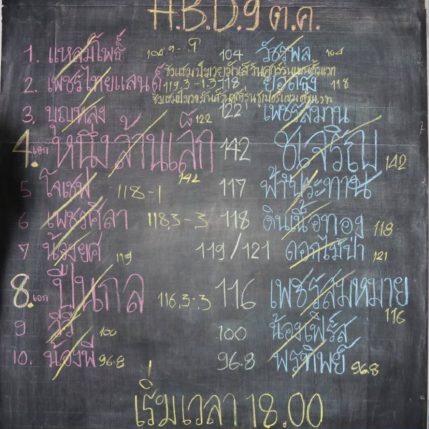 H.B.D. 9 ต.ค.
1. แหลมไพธิ์ 104 9-9 104 วัชรพล 104
2. เพชรไทยแลนด์ 119.3-1.3-118 ยอดธง 118
3. บุญหลง 122 122 เพชรสมาน
4. เอก หนึ่งล้านเล็ก 142 142 ช.เจริญ 142
5 โจเซฟ 118-1 117 ฟ้าประทาน
6 เพชรศิลา 118.3-3 118 ดินเนื้อทอง 118
7 น้องยศ 119 119/121 ดอกไม้ป่า 121
8. เอก ปืนกล 116.3-3 116 เพชรสมหมาย 116
9 100 100 น้องเฟิร์ส
10. น้องพี 96.8 96.8 พรทิพย์ 96.8
เริ่มเวลา 18.00